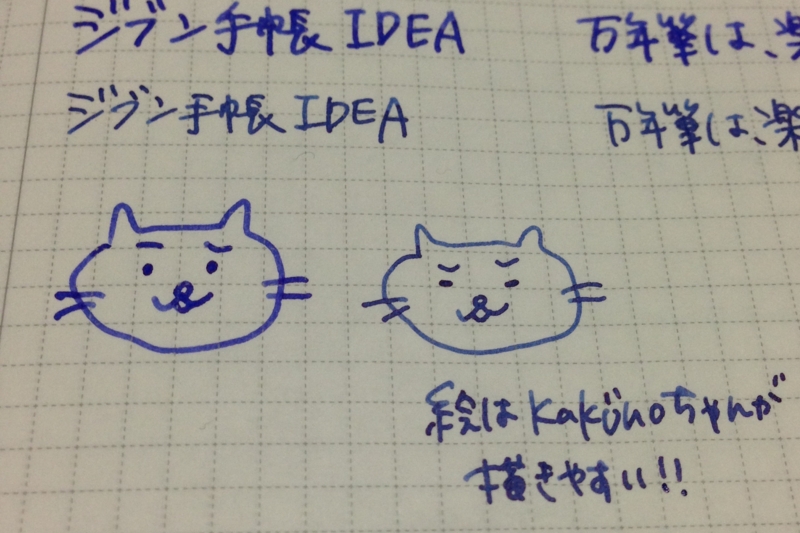 ジブン手帳 IDEA 万年筆は、楽
ジブン手帳 IDEA 万年筆は、楽
絵は Kakünoちゃんが
描きやすい!!